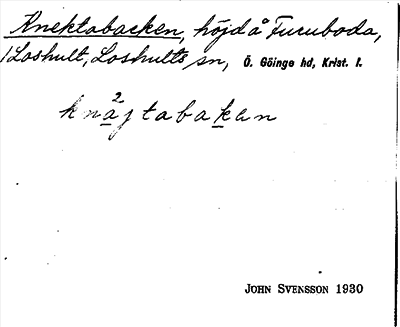 Knektabacken, höjd å Furuboda,
1 Loshult, Loshults sn, Ö. Göinge hd, Krist. l.
2
knäjtabakan
JOHN SVENSSON 1930